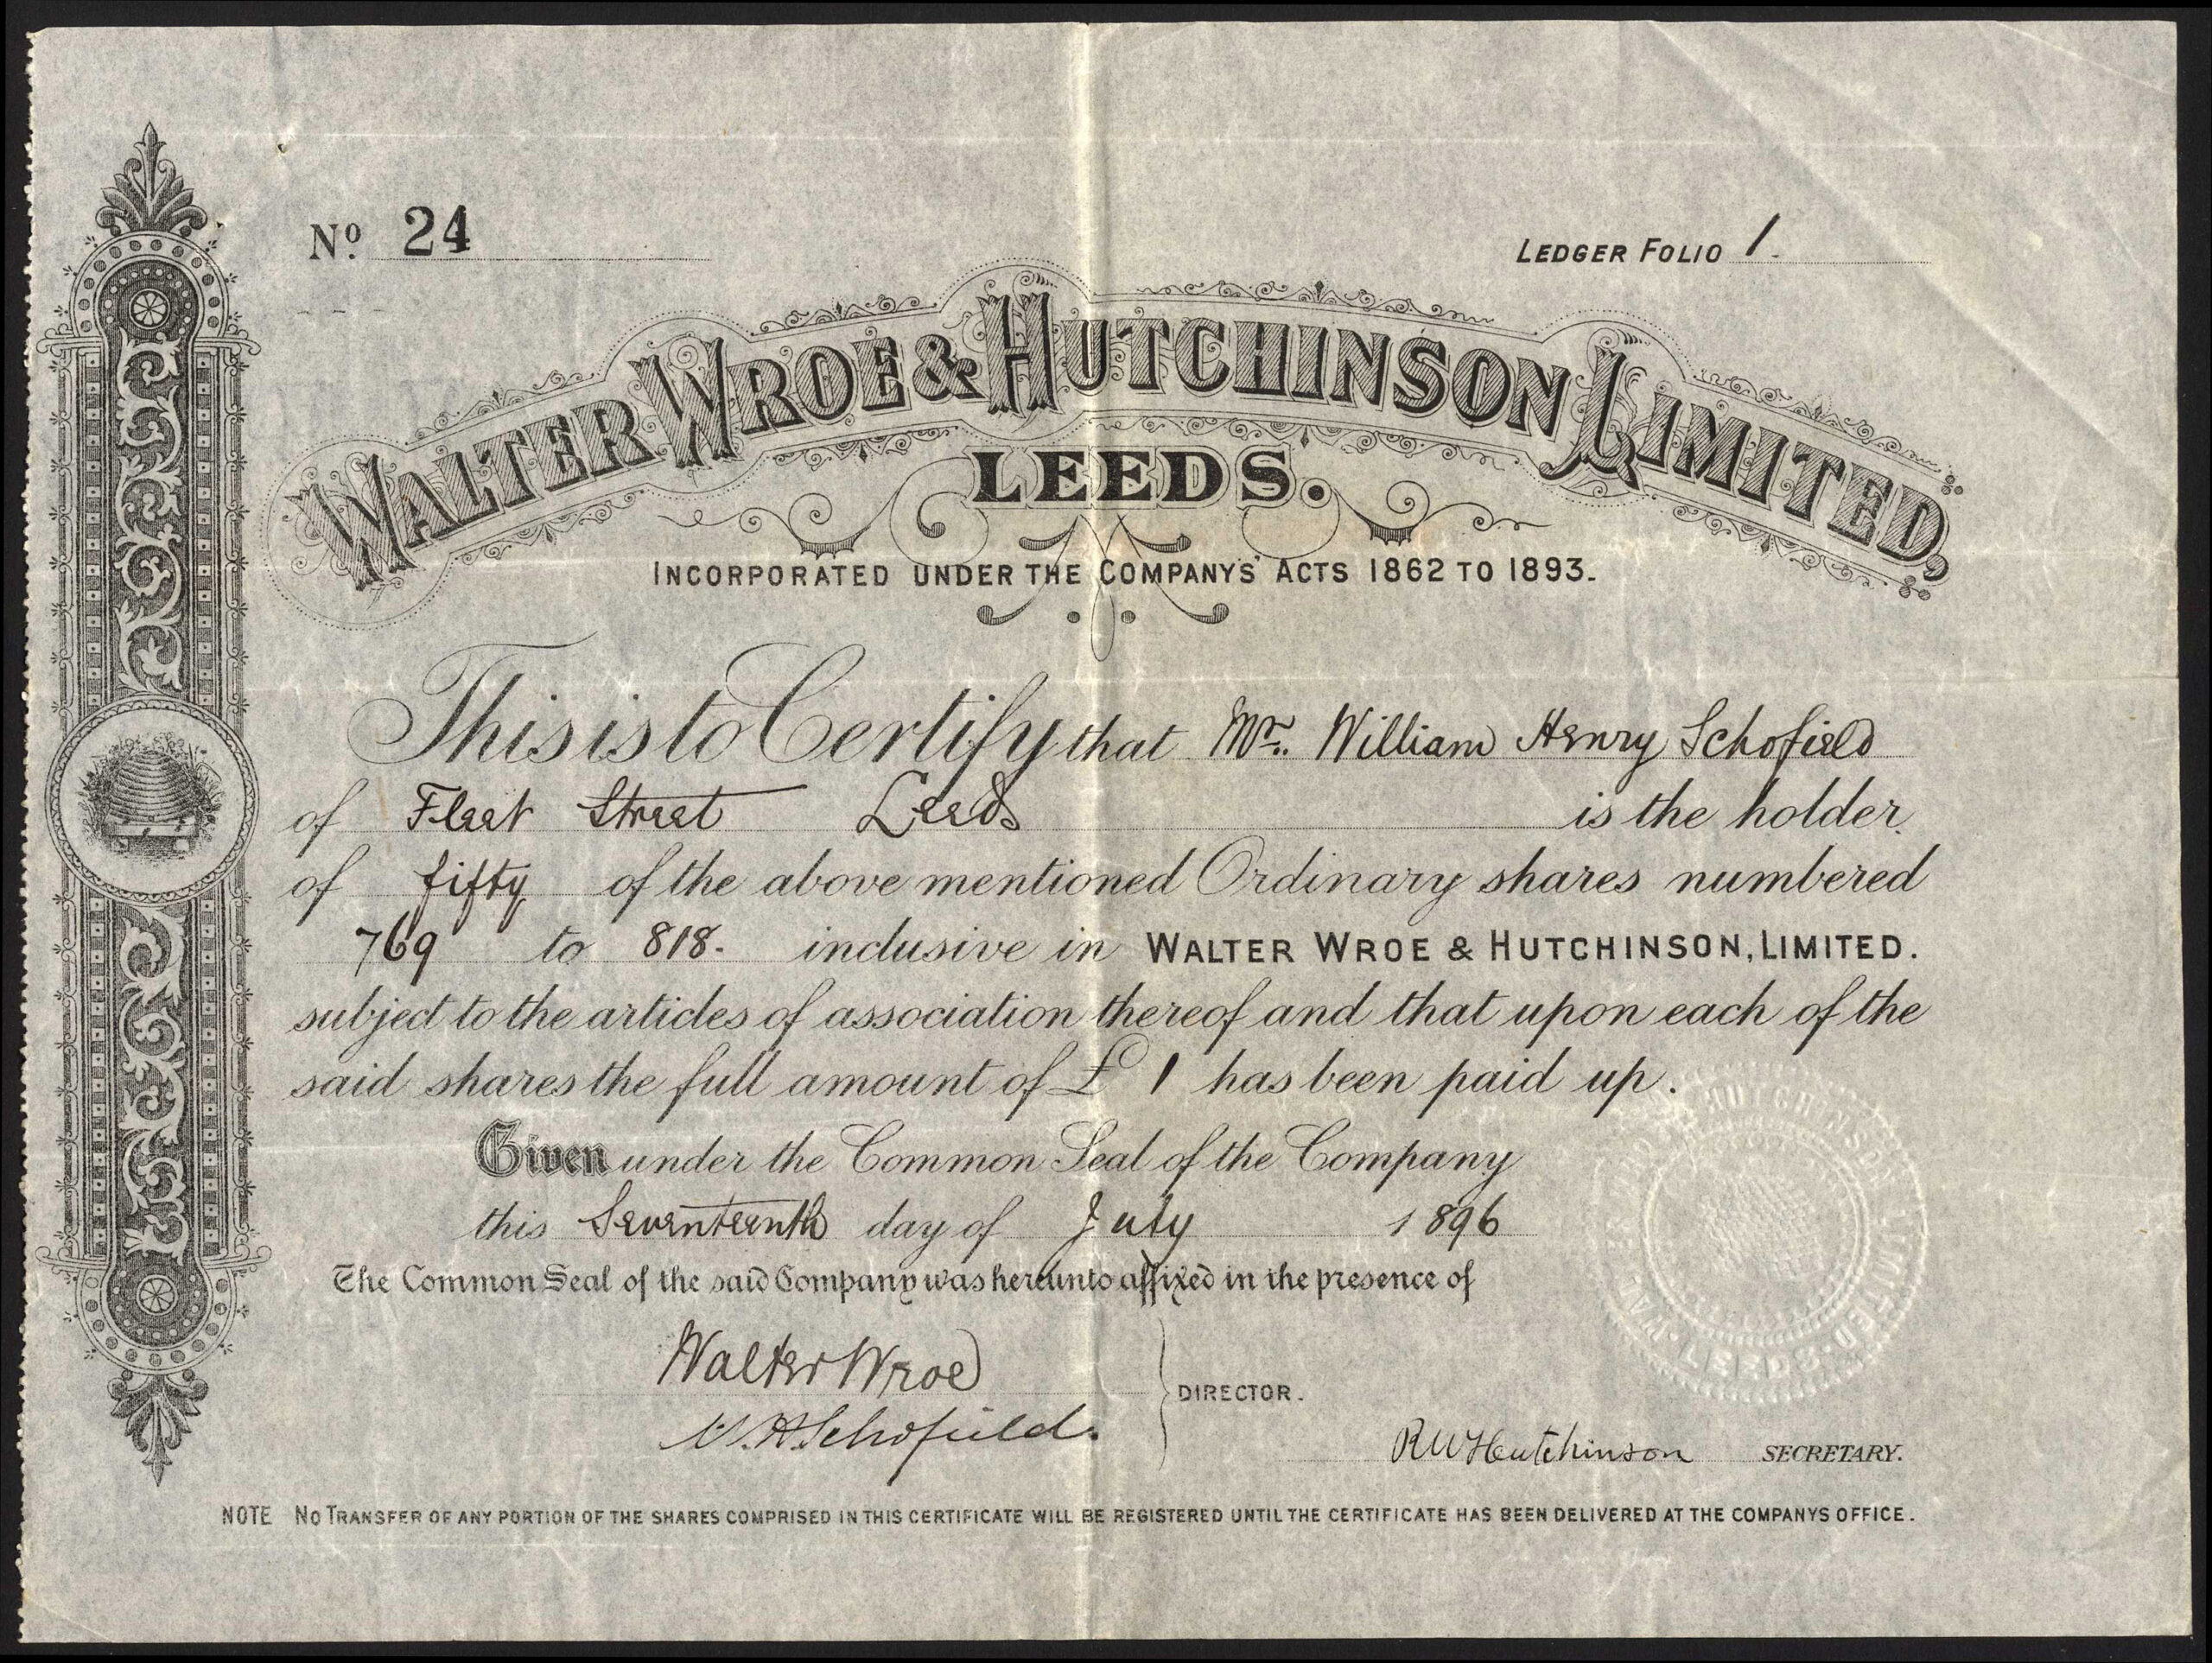 No. 24
LEDGER FOLIO 1.
WALTER WROE & HUTCHINSON LIMITED,
LEEDS.
INCORPORATED UNDER THE COMPANY'S ACTS 1862 TO 1893.
This is to Certify that Mr. William Henry Schofield
of Fleet Street Leeds is the holder
of fifty of the above mentioned Ordinary shares numbered
769 to 818. inclusive in WALTER WROE & HUTCHINSON, LIMITED.
subject to the articles of association thereof and that upon each of the
said shares the full amount of £ 1 has been paid up.
Given under the Common Seal of the Company
this Seventeenth day of July 1896
The Common Seal of the said Company was hereunto affixed in the presence of
Walter Wroe
DIRECTOR.
W. H. Schofield.
R W Hutchinson SECRETARY.
HUTCHINSON LIMITED
LEEDS
NOTE NO TRANSFER OF ANY PORTION OF THE SHARES COMPRISED IN THIS CERTIFICATE WILL BE REGISTERED UNTIL THE CERTIFICATE HAS BEEN DELIVERED AT THE COMPANYS OFFICE.